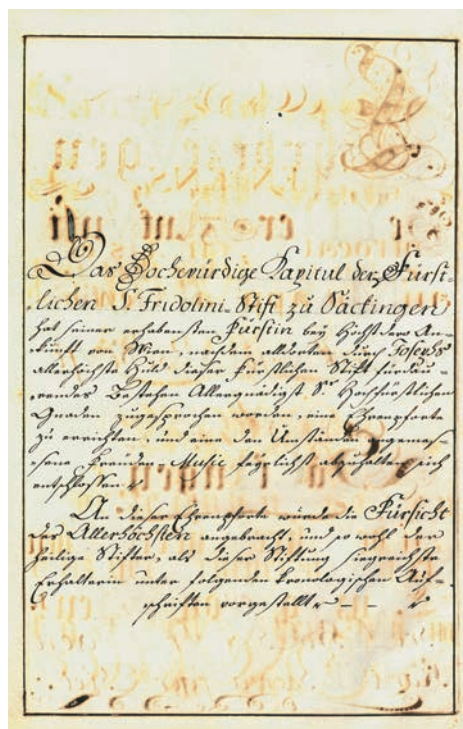 Das Hochwürdige Kapitul der Fürst-
lichen S. Fridolini-Stift zu Säckingen
hat seiner erhabensten Fürstin bey höchst dero An-
kunft von Wien, nachdem alldorten durch Josephs
allerhöchste Huld dieser Fürstlichen Stift fürdau-
rendes Bestehen Allergnädigst Sr Hochfürstlichen
Gnaden zugesprochen worden, eine Ehrenpforte
zu errichten, und eine den Umständen angemes-
sene Freuden-Music feyrlichst abzuhalten sich
entschlossen
An dieser Ehrenpforte wurde die Fürsicht
des Allerhöchsten angebracht, und so wohl der
heilige Stifter, als dieser Stiftung siegreichste
Erhalterin unter folgenden kronologischen Auf-
schriften vorgestellt